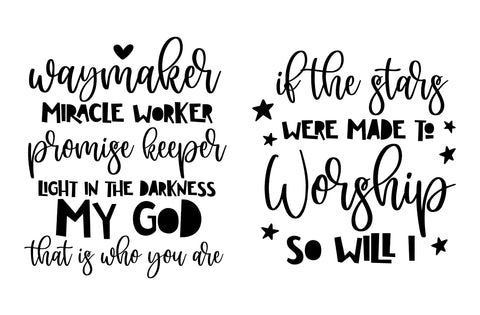 waymaker
MIRACLE WORKER
promise keeper
LIGHT IN THE DARKNESS
MY GOD
that is who you are
if the stars
WERE MADE TO
Worship
SO WILL I